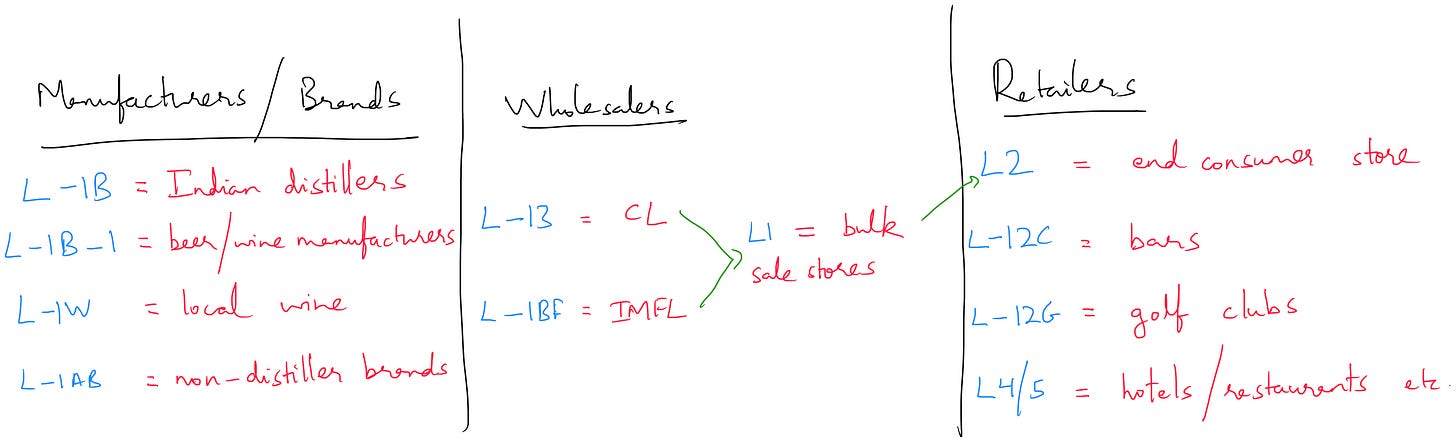 Manufacturers / Brands
L-1B = Indian distillers
L-1B-1 = beer/wine manufacturers
L-1W = local wine
L-1AB = non-distiller brands
Wholesalers
L-13 = CL
L-1BF = IMFL
L1 = bulk
sale stores
Retailers
L2 = end consumer store
L-12C = bars
L-12G = golf clubs
L4/5 = hotels/restaurants etc.